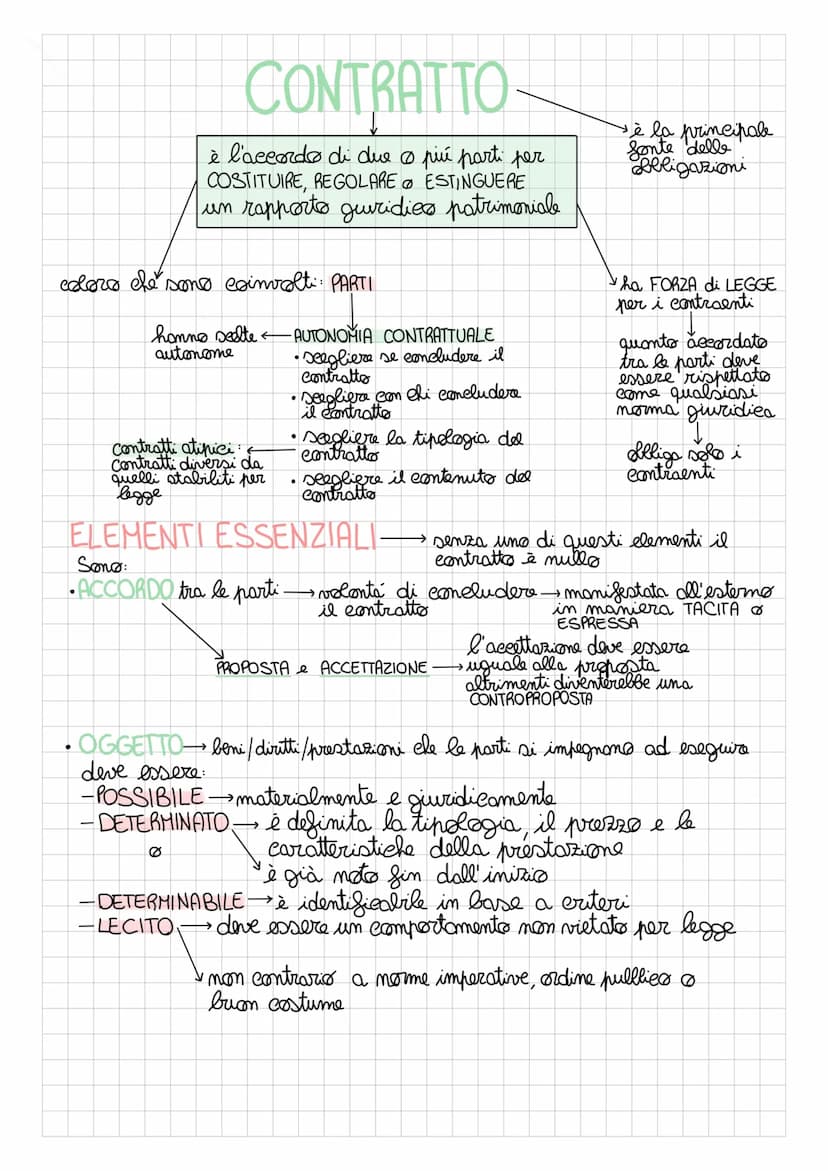 CONTRATTO
è la principale
fonte delle
obbligazioni
è l'accordo di due o piú parti per
COSTITUIRE, REGOLARE o ESTINGUERE
un rapporto giuridico patrimoniale
coloro che sono coinvolti: PARTI
ha FORZA di LEGGE
per i contraenti
hanno scelte
autonome
AUTONOMIA CONTRATTUALE
• scegliere se concludere il
contratto
• scegliere con chi concludere
il contratto
• scegliere la tipologia del
contratto
• scegliere il contenuto del
contratto
quanto accordato
tra le parti deve
essere rispettato
come qualsiasi
norma giuridica
obbliga solo i
contraenti
contratti atipici:
contratti diversi da
quelli stabiliti per
legge
ELEMENTI ESSENZIALI → senza uno di questi elementi il
contratto è nullo
Sono:
• ACCORDO tra le parti → volontá di concludere → manifestata all'esterno
il contratto in maniera TACITA o
ESPRESSA
l'accettazione deve essere
PROPOSTA e ACCETTAZIONE → uguale alla proposta
altrimenti diventerebbe una
CONTROPROPOSTA
• OGGETTO → beni/diritti/prestazioni che le parti si impegnano ad eseguire
deve essere:
- POSSIBILE → materialmente e giuridicamente
- DETERMINATO → è definita la tipologia, il prezzo e le
o caratteristiche della prestazione
è già noto fin dall'inizio
- DETERMINABILE → è identificabile in base a criteri
- LECITO → deve essere un comportamento non vietato per legge
non contrario a norme imperative, ordine pubblico o
buon costume